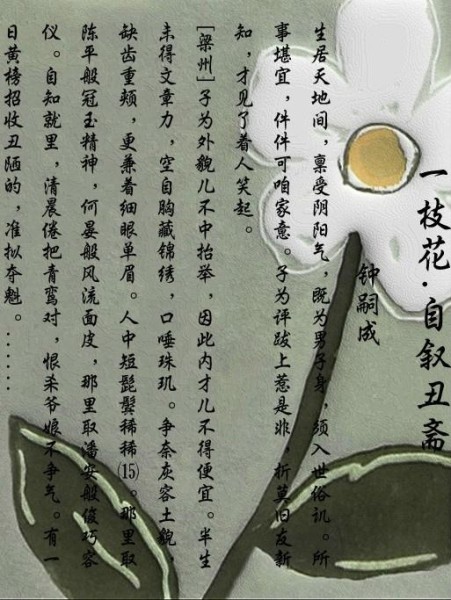 一枝花·自叙丑斋
钟嗣成
生居天地间，禀受阴阳气，既为男子身，须入世俗讥。所
事堪宜，件件可咱家意。子为评跋上惹是非，折莫旧友新
知，才见了着人笑起。
[梁州]子为外貌儿不中抬举，因此内才儿不得便宜。半生
未得文章力，空自胸藏锦绣，口唾珠玑。争奈灰容土貌，
缺齿重颏，更兼着细眼单眉。人中短髭鬓稀稀⒂。那里取
陈平般冠玉精神，何晏般风流面皮，那里取潘安般俊巧容
仪。自知就里，清晨倦把青鸾对，恨杀爷娘不争气。有一
日黄榜招收丑陋的，准拟夺魁。......